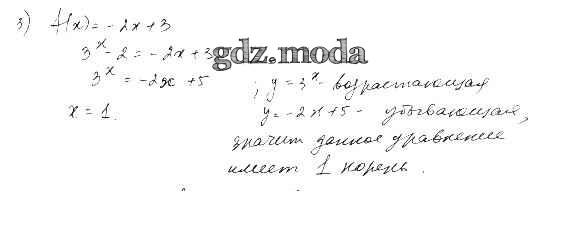 3) f(x) = - 2x + 3
3^x - 2 = - 2x + 3
gdz.moda
3^x = -2x + 5 ; y = 3^x - возрастающая
x = 1. y = -2x + 5 - убывающая,
значит данное уравнение
имеет 1 корень.